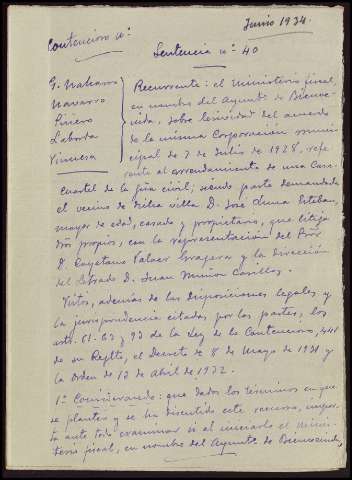 Junio 1934.
Contencioso nº
Sentencia nº 40
G. Navarro
Navarro
Piñero
Laborda
Vinuesa
Recurrente: el Ministerio fiscal,
en nombre del Ayunto. de Bienve-
nida, sobre lesividad del acuerdo
de la misma Corporación muni-
cipal de 7 de Julio de 1928, refe-
rente al arrendamiento de una Casa
Cuartel de la gª civil; siendo parte demandada
el vecino de dicha villa D. José Luna Esteban,
mayor de edad, casado y propietario, que litiga
por propios, con la representación del Pror
D. Cayetano Grajera y la dirección
del Letrado D. Juan Muñoz Casillas.
Vistos, además de las disposiciones legales y
la jurisprudencia citadas por las partes, los
arts. 61-63 y 93 de la Ley de lo Contencioso, 441
de su Regtto, el Decreto de 8 de Mayo de 1931 y
la Orden de 13 de Abril de 1932.
1º Considerando: que dados los términos en que
se plantea y se ha discutido este recurso, impor-
ta ante todo examinar si al iniciarlo el Minis-
terio fiscal, en nombre del Ayunto. de Bienvenida,